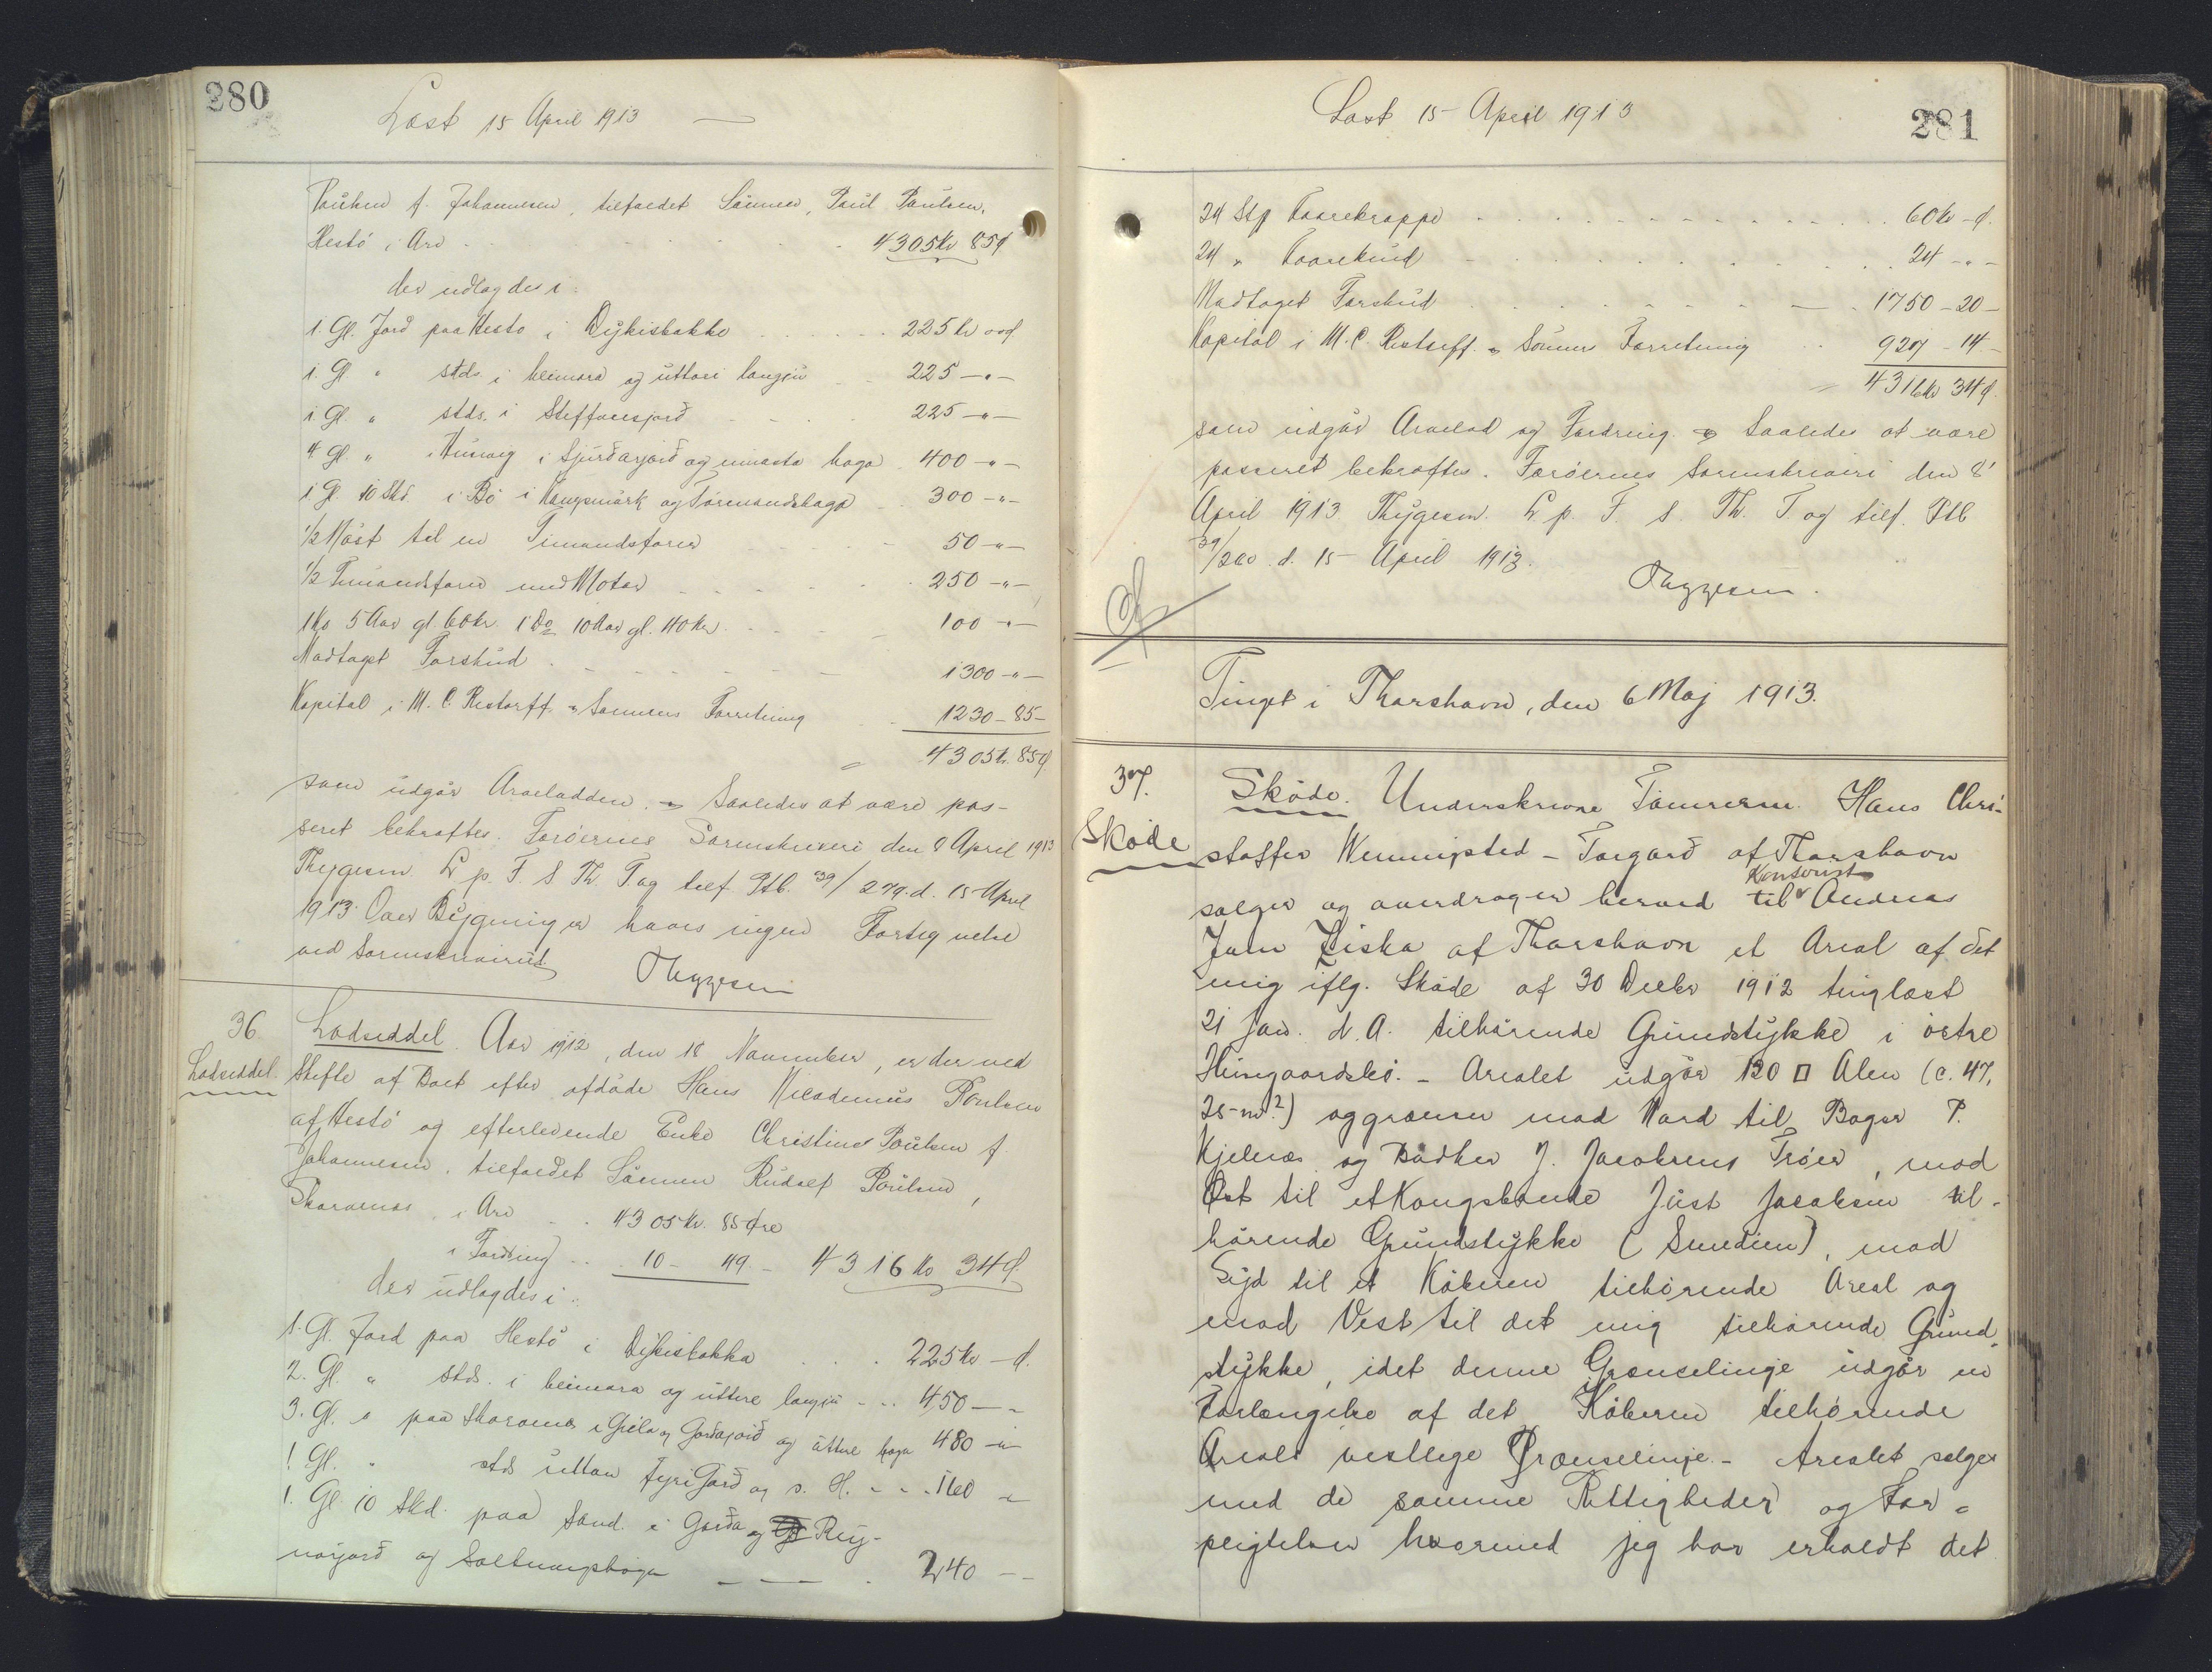 280
Læst 15 April 1913 —
Poulsen f. Johannesen, tilfaldet Sønnen, Poul Poulsen,
Hestö i Arv 4305 Kr 85 Ø
der udlagdes i:
1. Gl. Jord paa Hestö i Dÿkisbakka 225 kr ,, Ø
1. Gl " stds. i heimara og úttari langju 225 - " -
1 Gl. " stds. i Steffansjord 225 - " -
4 Gl. " i Húsavig i Sjúrdarjord og inniasta haga 400 - " -
1 Gl. 10 Skd. i Bø i Kongsmark og Tórmandshaga 300 - " -
1/2 Nøst til en Timandsfarer 50 - " -
1/2 Timandsfarer med Motor 250 - " -
1 Ko 5 Aar gl. 60 Kr. 1 Do 10 Aar gl. 40 Kr. 100 - " -
Modtaget Forskud 1300 - " -
Kapital i M. C. Restorff & Sønners Forretning 1230 - 85 -
= 4305 Kr. 85 Ø
som udgør Arvelodden. - Saaledes at være pas-
seret bekræftes. Færøernes Sorenskriveri den 8 April 1913
Thygesen. L. p. F. S. Th. T. og tilf. Ptb. 39/279. d. 15 April
1913. Over Bygninger haves ingen Fortegnelse
ved Sorenskriveriet Thygesen
36.
Lodseddel.
Lodseddel. Aar 1912, den 18 November, er der ved
Skifte af Boet efter afdøde Hans Nicodemus Poulsen
af Hestö og efterlevende Enke Christine Poulsen f.
Johannesen, tilfaldet Sønnen Rudolf Poulsen,
Skorvenæs, i Arv 4305 Kr. 85 Øre
i Fordring 10 - 49 - 4316 Kr 34 Ø.
der udlagdes i:
1. Gl. Jord paa Hestö i Dÿkisbakka 225 Kr - Ø.
2. Gl. " stds. i heimara og uttare langju 450 - "
3. Gl. " paa Skorvenæs i Giela og Gardajord og uttare haga 480 - " -
1 Gl. " stds uttan fyri Gard og s. H. 160 -
1. Gl 10 Skd. paa Sand i Garda og Rey-
norjord og Saltnangshaga 240 - -
281
Læst 15 - April 1913
24 Stg Faarekroppe 60 kr - Ø.
24 " Faareskind 24 - " -
Modtaget Forskud 1750 - 20 -
Kapital i M. C. Restorff & Sønners Forretning 927 - 14 -
= 4316 Kr 34 Ø.
som udgør Arvelod og Fordring. - Saaledes at være
passeret bekræftes. Færøernes Sorenskriveri den 8'
April 1913 Thygesen. L. p. F. S. Th. T. og tilf. Ptb
39/280. d. 15 - April 1913.
Thygesen.
Tinget i Thorshavn, den 6 Maj 1913.
37.
Skøde
Skøde. Underskrevne Tømrerm. Hans Chri-
stoffer Wenningsted - Torgard af Thorshavn
Kontorist
sælger og overdrager herved til Andreas
Jum Ziska af Thorshavn et Areal af det
mig iflg. Skøde af 30 Decbr 1912 tinglæst
21 Jan. d. A. tilhørende Grundstykke i østre
Húsgaardsbö. - Arealet udgør 120 □ Alen (c. 47,
28 m²) og grænser mod Nord til Bager P.
Kjelnæs og Bødker J. Jacobsens Trøer, mod
Øst til et Kongsbonde Just Jacobsen til-
hørende Grundstykke (Smedien), mod
Syd til et Køberen tilhørende Areal og
mod Vest til det mig tilhørende Grund-
stykke, idet denne Grænselinje udgør en
Forlængelse af det Køberen tilhørende
Areals vestlege Grænselinje. - Arealet sælges
med de samme Rettigheder og For-
pligtelser hvormed jeg har erholdt det